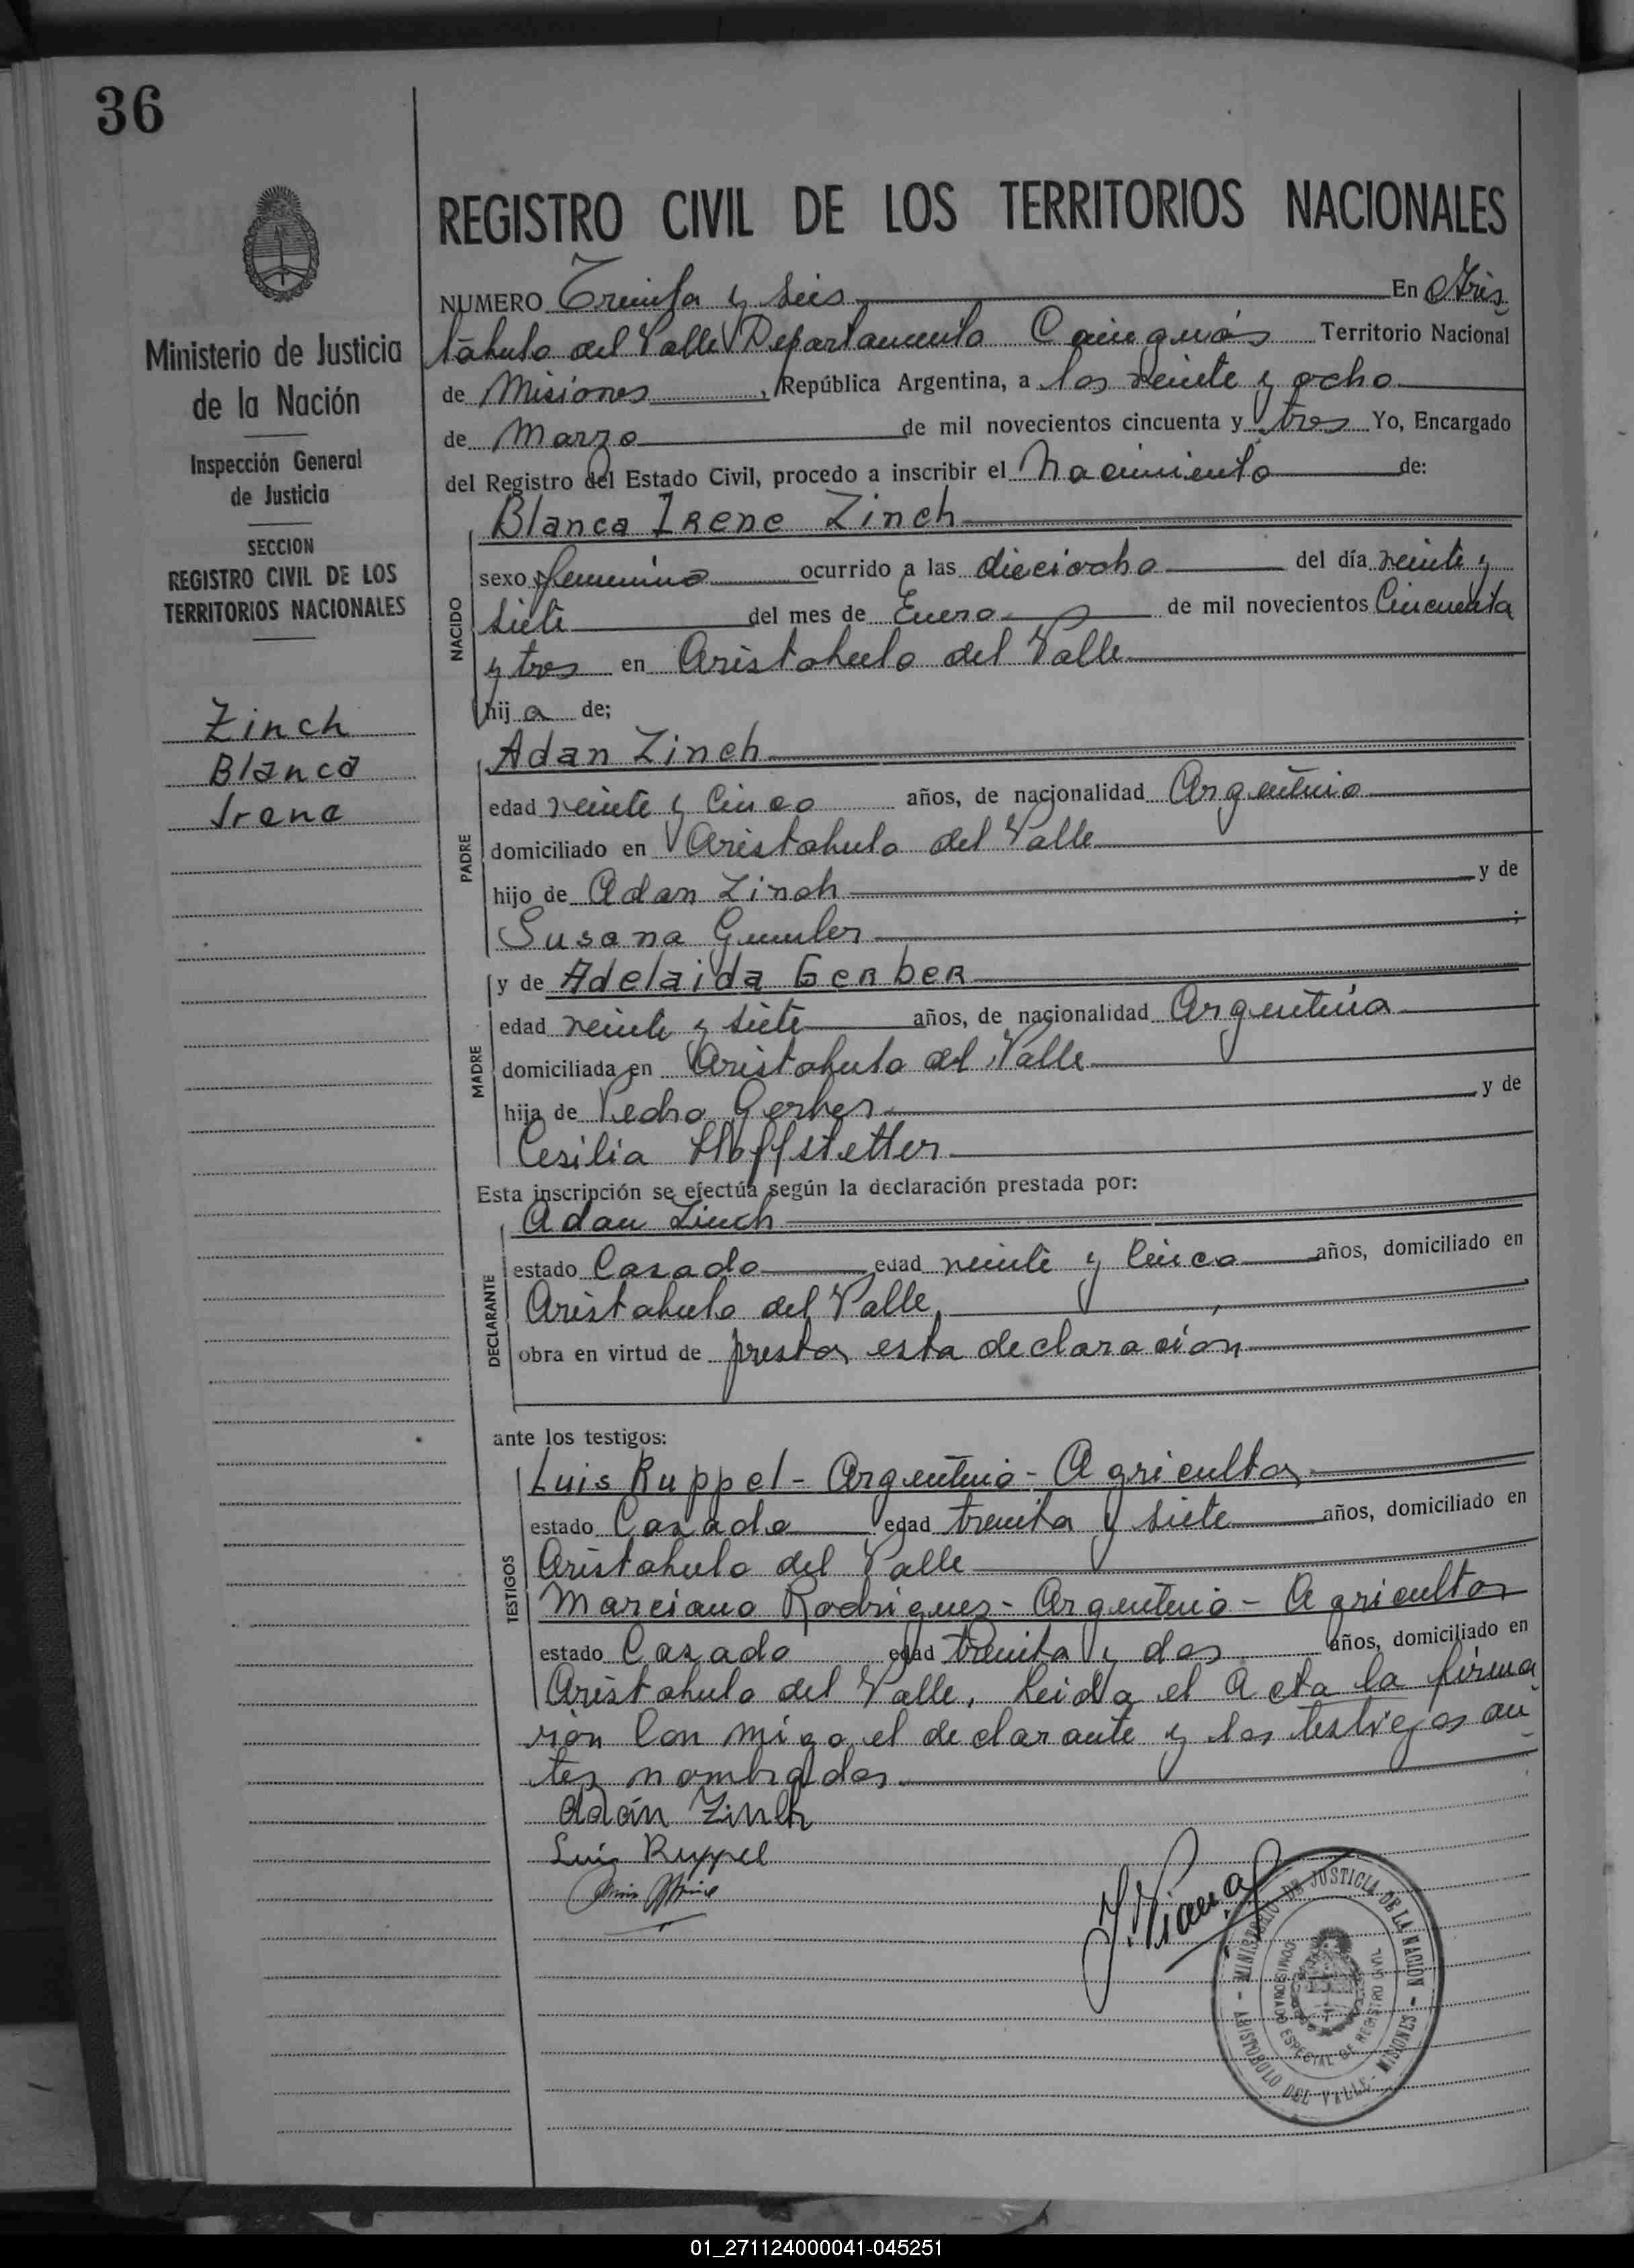 36
REGISTRO CIVIL DE LOS TERRITORIOS NACIONALES
Ministerio de Justicia
de la Nación
Inspección General
de Justicia
SECCION
REGISTRO CIVIL DE LOS
TERRITORIOS NACIONALES
Zinch
Blanca
Irene
NUMERO Treinta y seis En Aris
tóbulo del Valle Departamento Cainguás Territorio Nacional
de Misiones, República Argentina, a los veinte y ocho
de Marzo de mil novecientos cincuenta y tres Yo, Encargado
del Registro del Estado Civil, procedo a inscribir el Nacimiento de:
NACIDO
Blanca Irene Zinch
sexo femenino ocurrido a las dieciocho del día veinte y
siete del mes de Enero de mil novecientos Cincuenta
y tres en Aristobulo del Valle
hij a de;
PADRE
Adan Zinch
edad veinte y Cinco años, de nacionalidad Argentino
domiciliado en Aristobulo del Valle
hijo de Adan Zinch y de
Susana ;
MADRE
y de Adelaida Gerber
edad veinte y siete años, de nacionalidad Argentina
domiciliada en Aristobulo del Valle
hija de Pedro Gerber y de
Cesilia Hoffstetter
Esta inscripción se efectúa según la declaración prestada por:
DECLARANTE
Adan Zinch
estado Casado edad veinte y Cinco años, domiciliado en
Aristobulo del Valle,
obra en virtud de prestar esta declaración
ante los testigos:
TESTIGOS
Luis Ruppel - Argentino - Agricultor
estado Casado edad treinta y siete años, domiciliado en
Aristobulo del Valle
Marciano Rodriguez - Argentino - Agricultor
estado Casado edad treinta y dos años, domiciliado en
Aristobulo del Valle, Leida el Acta la firma
rón Con migo el declarante y los testigos an
tes nombrados.
Adán Zinch
Luis Ruppel
MINISTERIO DE JUSTICIA DE LA NACIÓN - MISIONES - ARISTOBULO DEL VALLE -
COMISIONADO ESPECIAL DE REGISTRO CIVIL
01_271124000041-045251